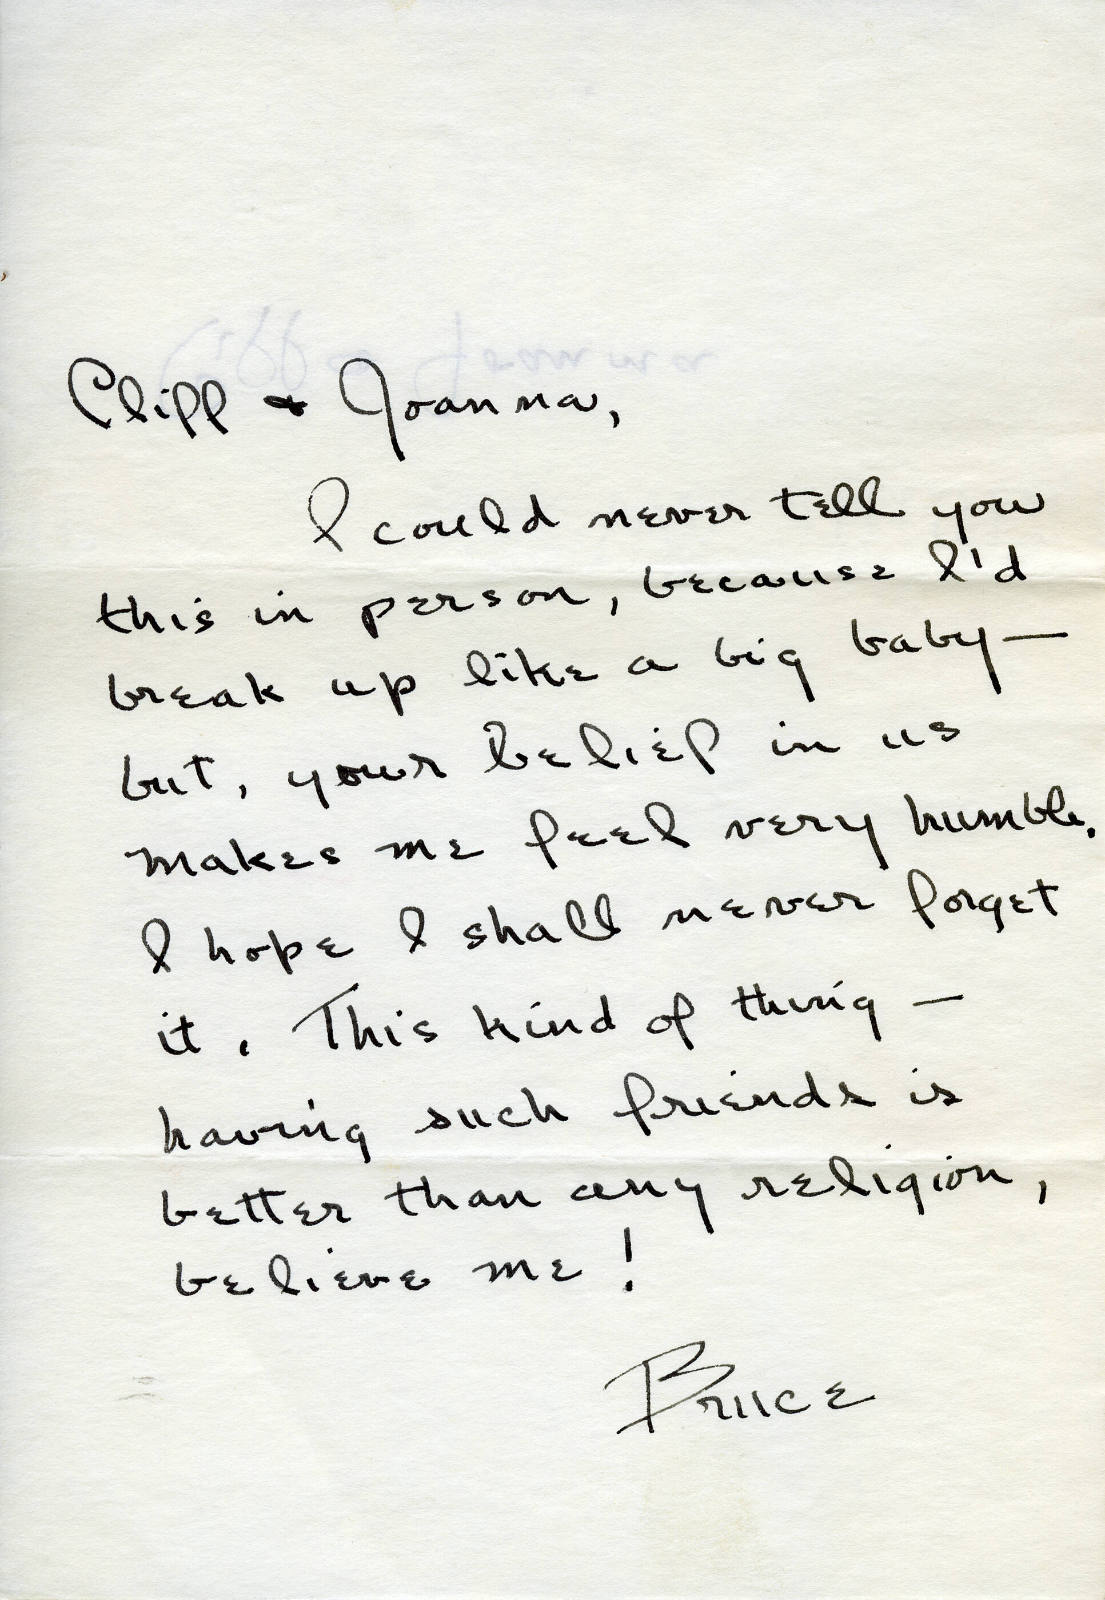 Cliff & Joanna,
I could never tell you
this in person, because I'd
break up like a big baby —
but, your belief in us
makes me feel very humble.
I hope I shall never forget
it. This kind of thing —
having such friends is
better than any religion,
believe me!
Bruce